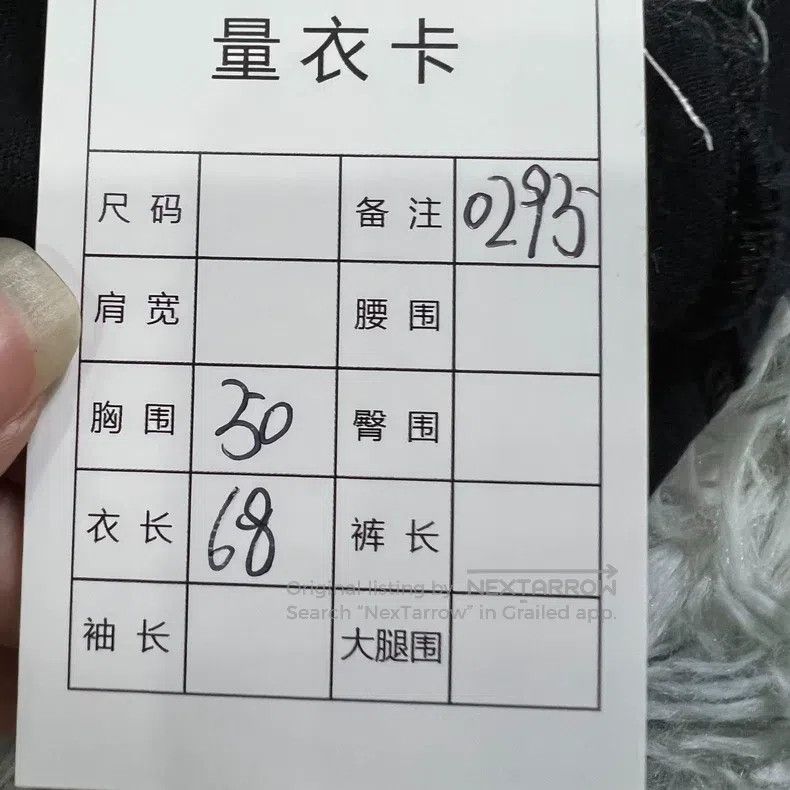 量衣卡
尺码 备注 0295
肩宽 腰围
胸围 50 臀围
衣长 68 裤长
袖长 大腿围
Original listing by NEXTARROW
Search "NexTarrow" in Grailed app.